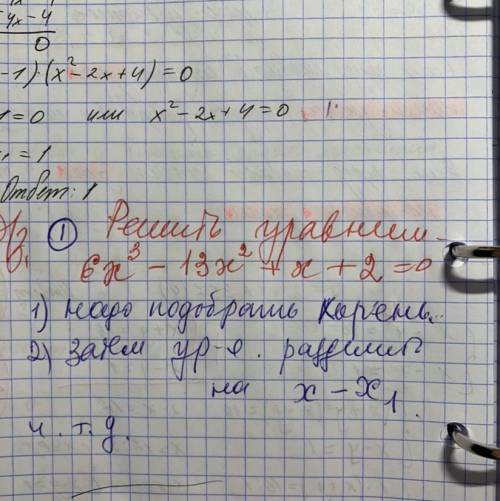 4x-4
0
-1)·(x²-2x+4)=0
1=0 или x²-2x+4=0
=1
Ответ: 1
① Решить уравнен.
6x³-13x²+x+2=0
1) надо подобрать корень.
2) затем ур-е. разделить
на x-x₁.
и. т. д.